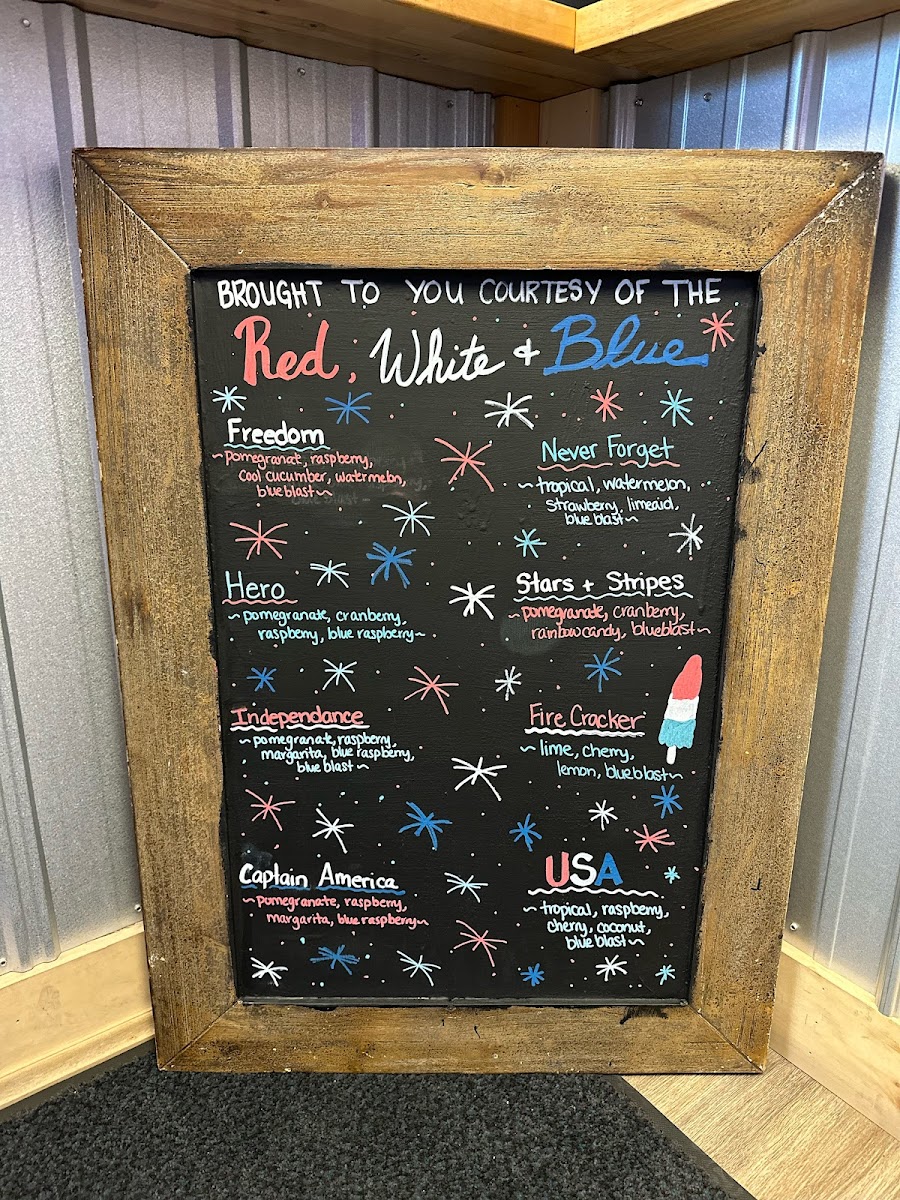 BROUGHT TO YOU COURTESY OF THE
Red, White + Blue
Freedom
~pomegranate, raspberry,
cool cucumber, watermelon,
blue blast~
Never Forget
~tropical, watermelon,
strawberry, limeaid,
blue blast~
Hero
~pomegranate, cranberry,
raspberry, blue raspberry~
Stars + Stripes
~pomegranate, cranberry,
rainbow candy, blueblast~
Independance
~pomegranate, raspberry,
margarita, blue raspberry,
blue blast~
Fire Cracker
~lime, cherry,
lemon, blueblast~
Captain America
~pomegranate, raspberry,
margarita, blue raspberry~
USA
~tropical, raspberry,
cherry, coconut,
blue blast~